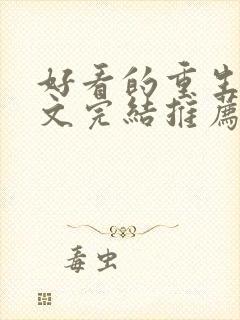 好看的重生
文完結推薦
毒虫